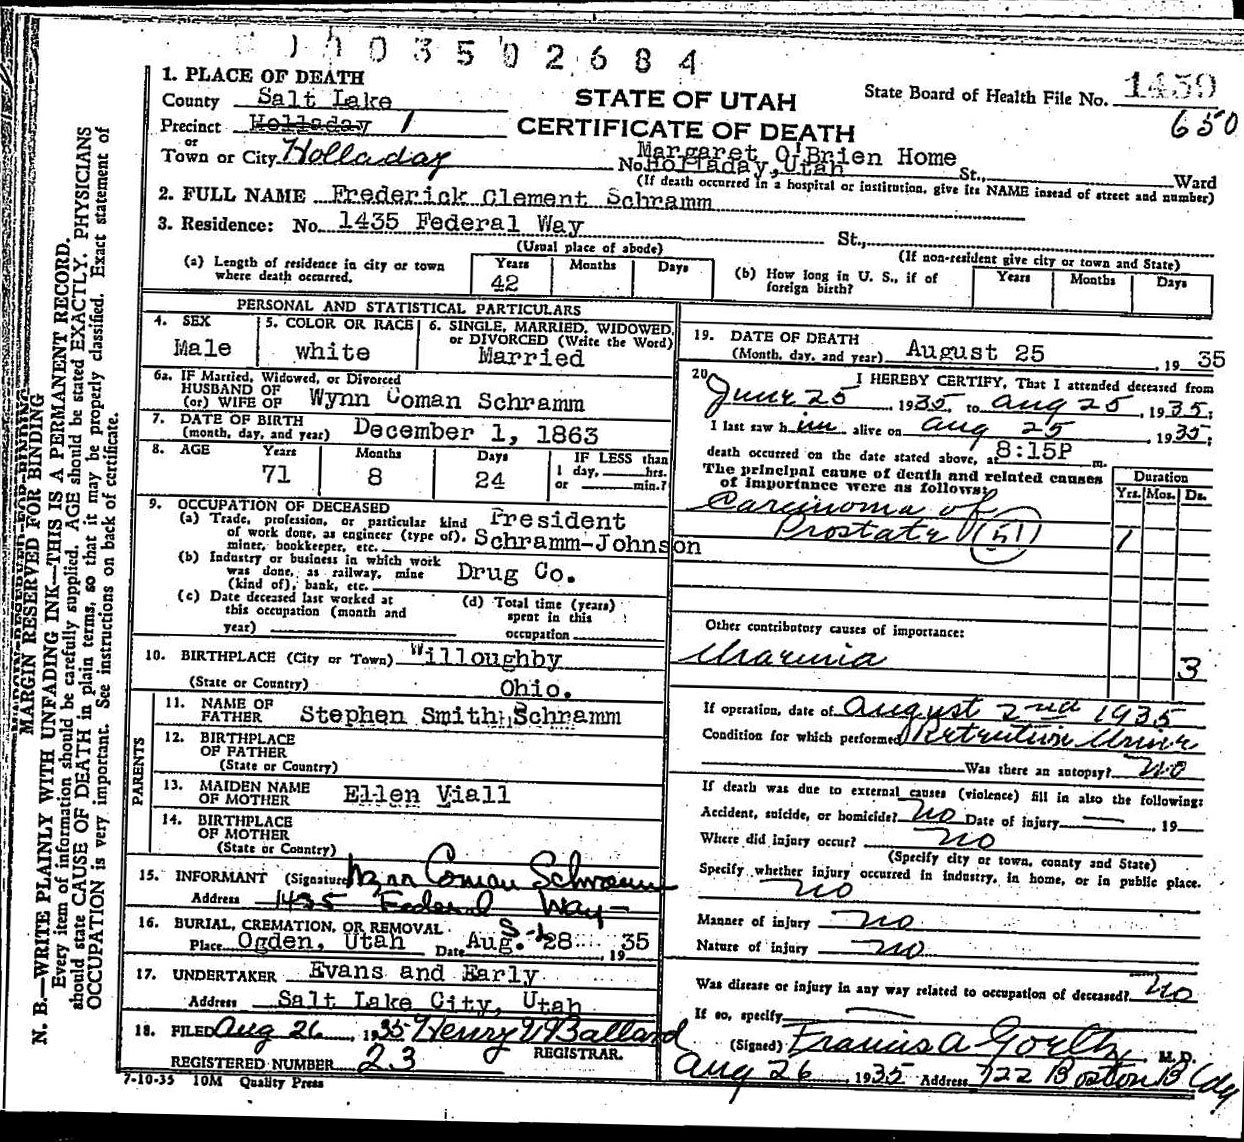 1 0 3 5 0 2 6 8 4
1. PLACE OF DEATH
County Salt Lake
STATE OF UTAH
State Board of Health File No. 1459
650
Precinct Holladay 1
CERTIFICATE OF DEATH
or
Town or City Holladay
Margaret O'Brien Home
No. Holladay, Utah St., Ward
(If death occurred in a hospital or institution, give its NAME instead of street and number)
2. FULL NAME Frederick Clement Schramm
3. Residence: No. 1435 Federal Way St.,
(Usual place of abode) (If non-resident give city or town and State)
(a) Length of residence in city or town where death occurred. Years 42 Months Days
(b) How long in U. S., if of foreign birth? Years Months Days
PERSONAL AND STATISTICAL PARTICULARS
4. SEX Male
5. COLOR OR RACE white
6. SINGLE, MARRIED, WIDOWED, or DIVORCED (Write the Word) Married
6a. IF Married, Widowed, or Divorced
HUSBAND OF
(or) WIFE OF Wynn Coman Schramm
7. DATE OF BIRTH
(month, day, and year) December 1, 1863
8. AGE Years 71 Months 8 Days 24 IF LESS than 1 day, hrs. or min.?
9. OCCUPATION OF DECEASED
(a) Trade, profession, or particular kind of work done, as engineer (type of), miner, bookkeeper, etc. President Schramm-Johnson
(b) Industry or business in which work was done, as railway, mine (kind of), bank, etc. Drug Co.
(c) Date deceased last worked at this occupation (month and year)
(d) Total time (years) spent in this occupation
10. BIRTHPLACE (City or Town) Willoughby
(State or Country) Ohio.
PARENTS
11. NAME OF FATHER Stephen Smith Schramm
12. BIRTHPLACE OF FATHER
(State or Country)
13. MAIDEN NAME OF MOTHER Ellen Viall
14. BIRTHPLACE OF MOTHER
(State or Country)
15. INFORMANT (Signature) Wynn Coman Schramm
Address 1435 Federal Way
16. BURIAL, CREMATION, OR REMOVAL
Place Ogden, Utah Date Aug. 28 1935
17. UNDERTAKER Evans and Early
Address Salt Lake City, Utah
18. FILED Aug 26, 1935 Henry W Ballard
REGISTRAR.
REGISTERED NUMBER 23
7-10-35 10M Quality Press
19. DATE OF DEATH
(Month, day, and year) August 25, 1935
20. I HEREBY CERTIFY, That I attended deceased from
June 25, 1935, to Aug 25, 1935;
I last saw him alive on Aug 25, 1935;
death occurred on the date stated above, at 8:15P m.
The principal cause of death and related causes of importance were as follows: Duration
Yrs. Mos. Ds.
Carcinoma of
Prostate (51) 1
Other contributory causes of importance:
Uraemia 3
If operation, date of August 2nd 1935
Condition for which performed Retention Urine
Was there an autopsy? No
If death was due to external causes (violence) fill in also the following:
Accident, suicide, or homicide? No Date of injury — , 19
Where did injury occur? No
(Specify city or town, county and State)
Specify whether injury occurred in industry, in home, or in public place.
No
Manner of injury No
Nature of injury No
Was disease or injury in any way related to occupation of deceased? No
If so, specify —
(Signed) Francis A Goeltz, M. D.
Aug 26, 1935 Address 722 Boston Bldg
MARGIN RESERVED FOR BINDING
N. B.—WRITE PLAINLY WITH UNFADING INK—THIS IS A PERMANENT RECORD.
Every item of information should be carefully supplied. AGE should be stated EXACTLY. PHYSICIANS
should state CAUSE OF DEATH in plain terms, so that it may be properly classified. Exact statement of
OCCUPATION is very important. See instructions on back of certificate.